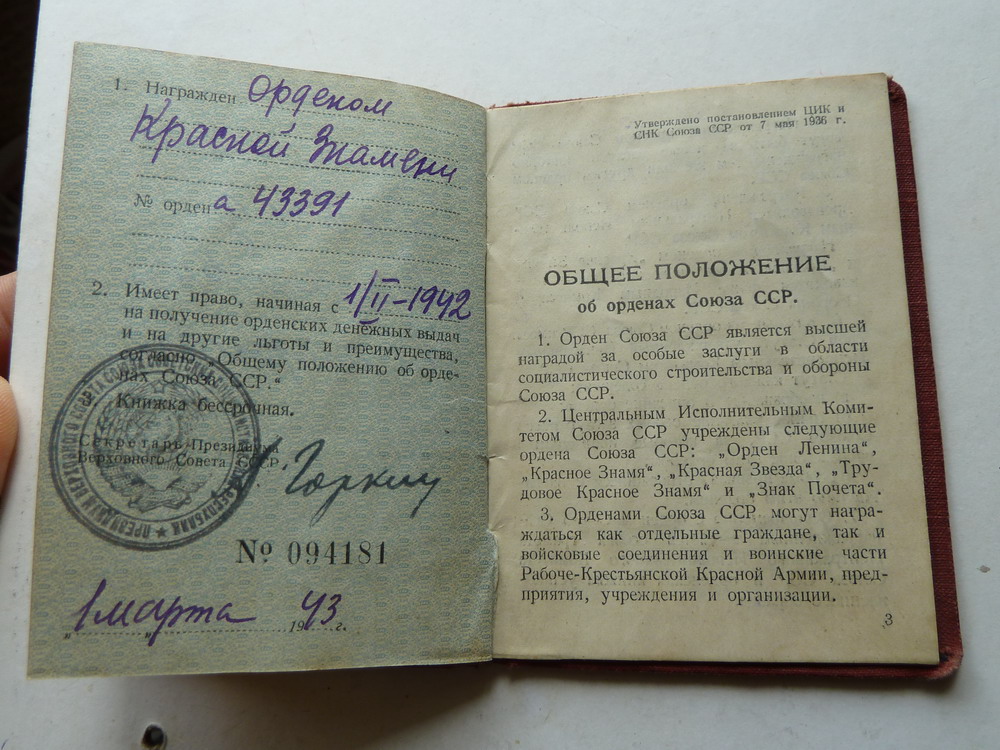 1. Награжден Орденом
Красной Знамени
№ ордена 43391
2. Имеет право, начиная с 1/II-1942
на получение орденских денежных выдач
и на другие льготы и преимущества,
согласно „Общему положению об орде-
нах Союза ССР.“
Книжка бессрочная.
Секретарь Президиума
Верховного Совета СССР
А. Горкин
№ 094181
„1 марта 1943 г.
Утверждено постановлением ЦИК и
СНК Союза ССР от 7 мая 1936 г.
ОБЩЕЕ ПОЛОЖЕНИЕ
об орденах Союза ССР.
1. Орден Союза ССР является высшей
наградой за особые заслуги в области
социалистического строительства и обороны
Союза ССР.
2. Центральным Исполнительным Коми-
тетом Союза ССР учреждены следующие
ордена Союза ССР: „Орден Ленина“,
„Красное Знамя“, „Красная Звезда“, „Тру-
довое Красное Знамя“ и „Знак Почета“.
3. Орденами Союза ССР могут награ-
ждаться как отдельные граждане, так и
войсковые соединения и воинские части
Рабоче-Крестьянской Красной Армии, пред-
приятия, учреждения и организации.
3